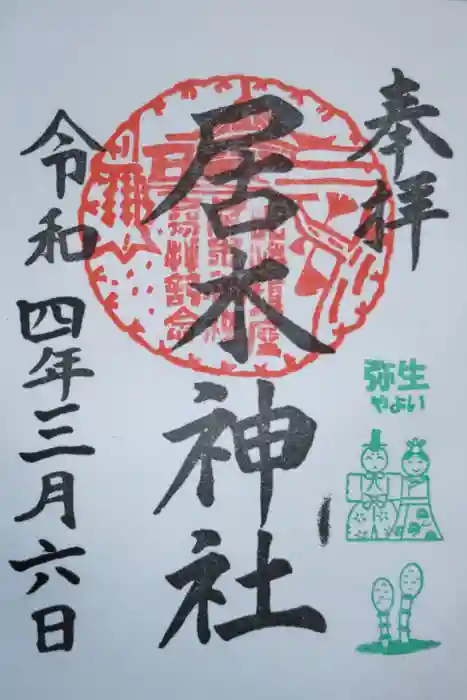 奉拝
居木神社
令和四年三月六日
弥生
やよい